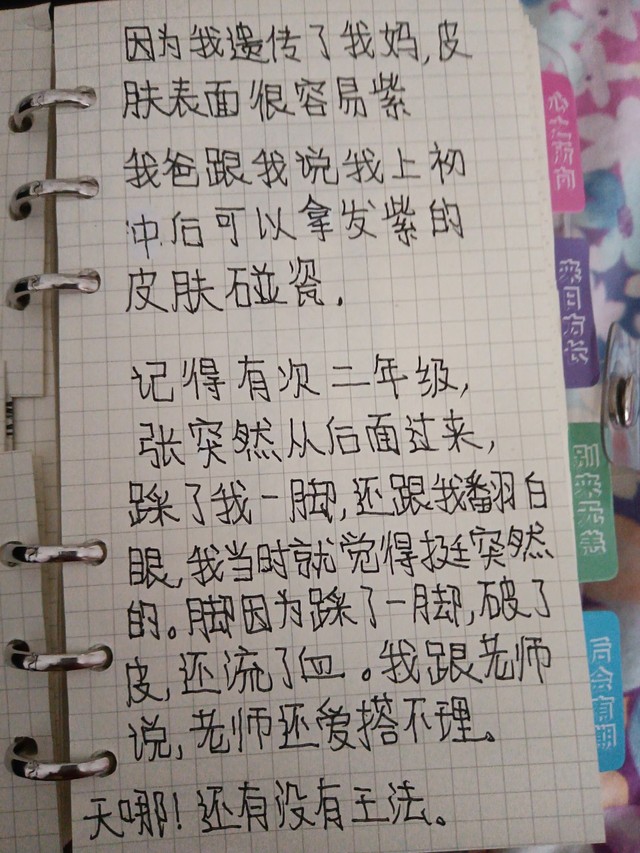 因为我遗传了我妈,皮
肤表面很容易紫
我爸跟我说我上初
冲后可以拿发紫的
皮肤碰瓷.
记得有次二年级,
张突然从后面过来,
踩了我一脚,还跟我翻白
眼,我当时就觉得挺突然
的。脚因为踩了一脚,破了
皮,还流了血。我跟老师
说,老师还爱搭不理。
天哪!还有没有王法。
来日方长
别来无恙
后会有期